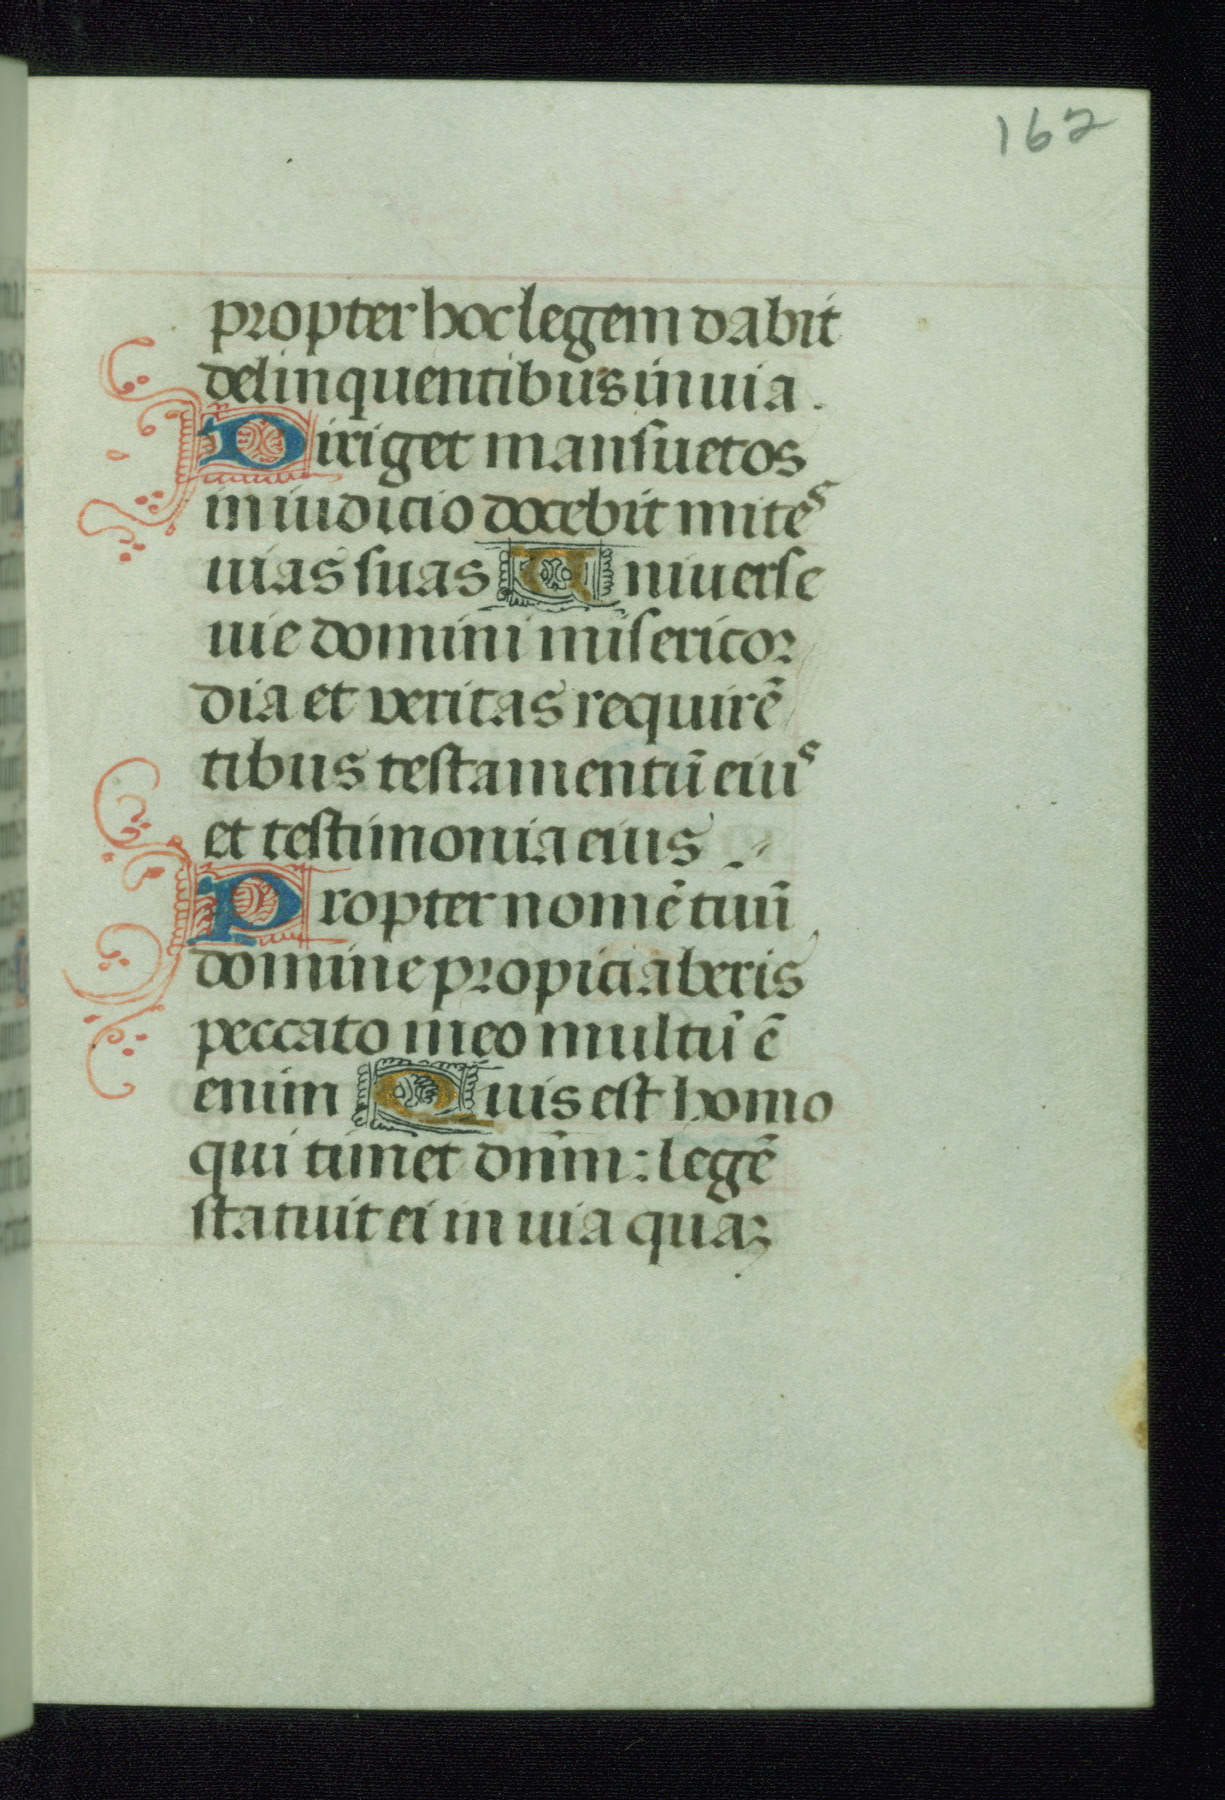 162
propter hoc legem dabit
delinquentibus in uia.
Diriget mansuetos
in iudicio docebit mites
uias suas Uniuerse
uie domini misericor
dia et veritas requirē
tibus testamentū eius
et testimonia eius
Propter nomē tuū
domine propiciaberis
peccato meo multū ē
enim Quis est homo
qui timet dn̄m: legē
statuit ei in uia quaꝫ